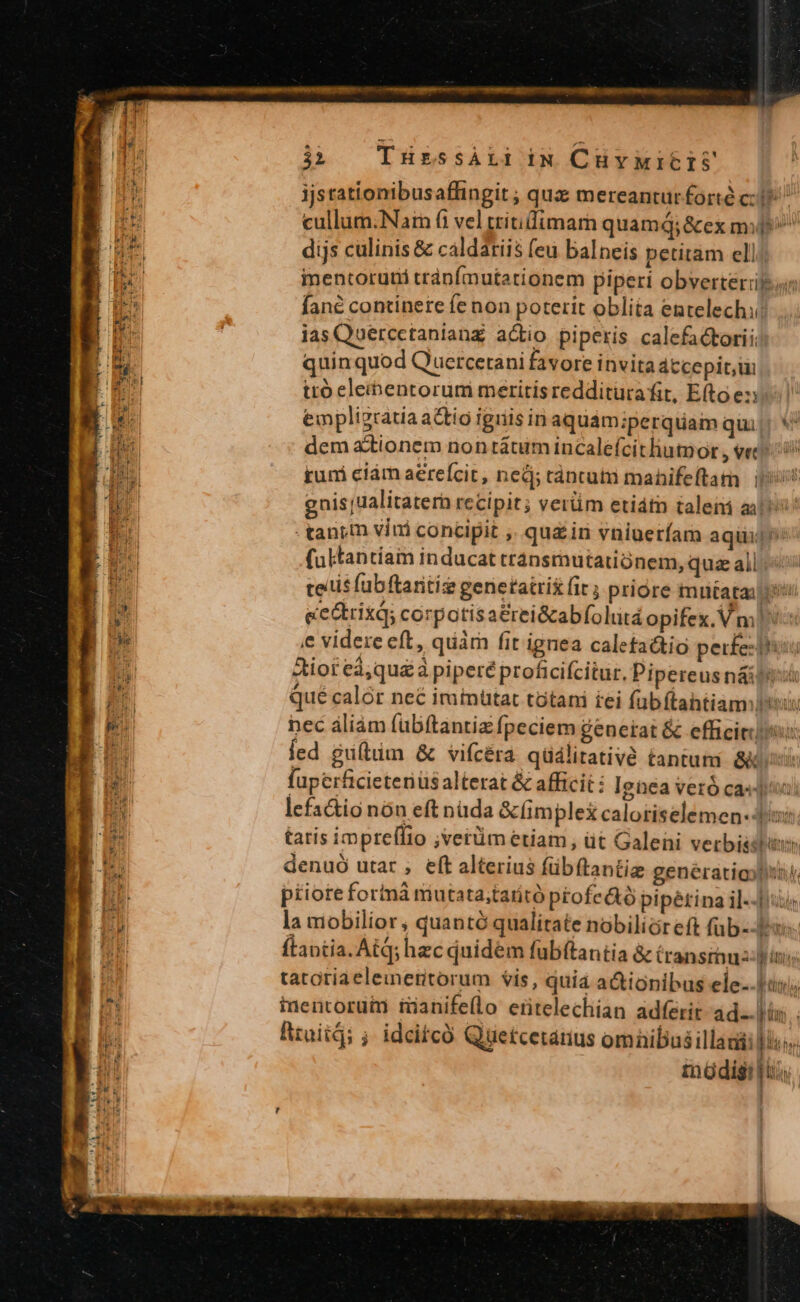 32 THESSALI IN CHYMICIS
ijs rationibus affingit; quæ mereantur fortè
cullum. Nam ſi vel tritiſſimam quamq́; & ex
dijs culinis & caldariis ſeu balneis petitam
mentorum tránſmutationem piperi obverter
ſanè continere ſe non poterit oblita entelech
ias Quercetanianæ actio piperis calefactorii
quin quod Quercetani favore invita accepit,
trò elementorum meritis redditura ſit. Eſto
empli gratia actio ignis in aquam: perquam
dem actionem non tátum incaleſcit humor,
rum etiàm aëreſcit, neq́; tàntum manifeſtam
gnis qualitatem recipit; verùm etiám talem
tantm vim concipit, quæ in vniuerſam
ſubſtantiam inducat tránsmutatiònem, quæ
teriùs ſubſtantiæ generatrix ſit; priòre mutata
ectrixq́; corporis aërei & abſolutá opifex.
e videre eſt, quàm ſit ignea calefactio
ctior eá, quæ à piperé proficiſcitur. Pipereus
que calòr nec immùtat tòtam rei ſubſtantiam
nec áliám ſubſtantiæ ſpeciem génerat & efficit
ſed guſtùm & viſcéra quálitativè tantum &
ſuperficietenùs alterat & afficit: Ignea verò ca-
lefactio nòn eſt nùda & ſimplex caloris elemen-
taris impreſſio; verùm etiam, ùt Galeni verbis
denuò utar, eſt alterius ſubſtantiæ generatio
priore formà mutata, tantò profectò piperina il-
la mobilior, quantò qualitate nobilior eſt ſub-
ſtantia. Atq́; hæc quidem ſubſtantia & transmu-
tatoria elementorum vis, quia actionibus ele-
mentorum manifeſto entelechian adſerit ad-
ſtruitq́;; idcircò Quercetánus omnibus illam
modis